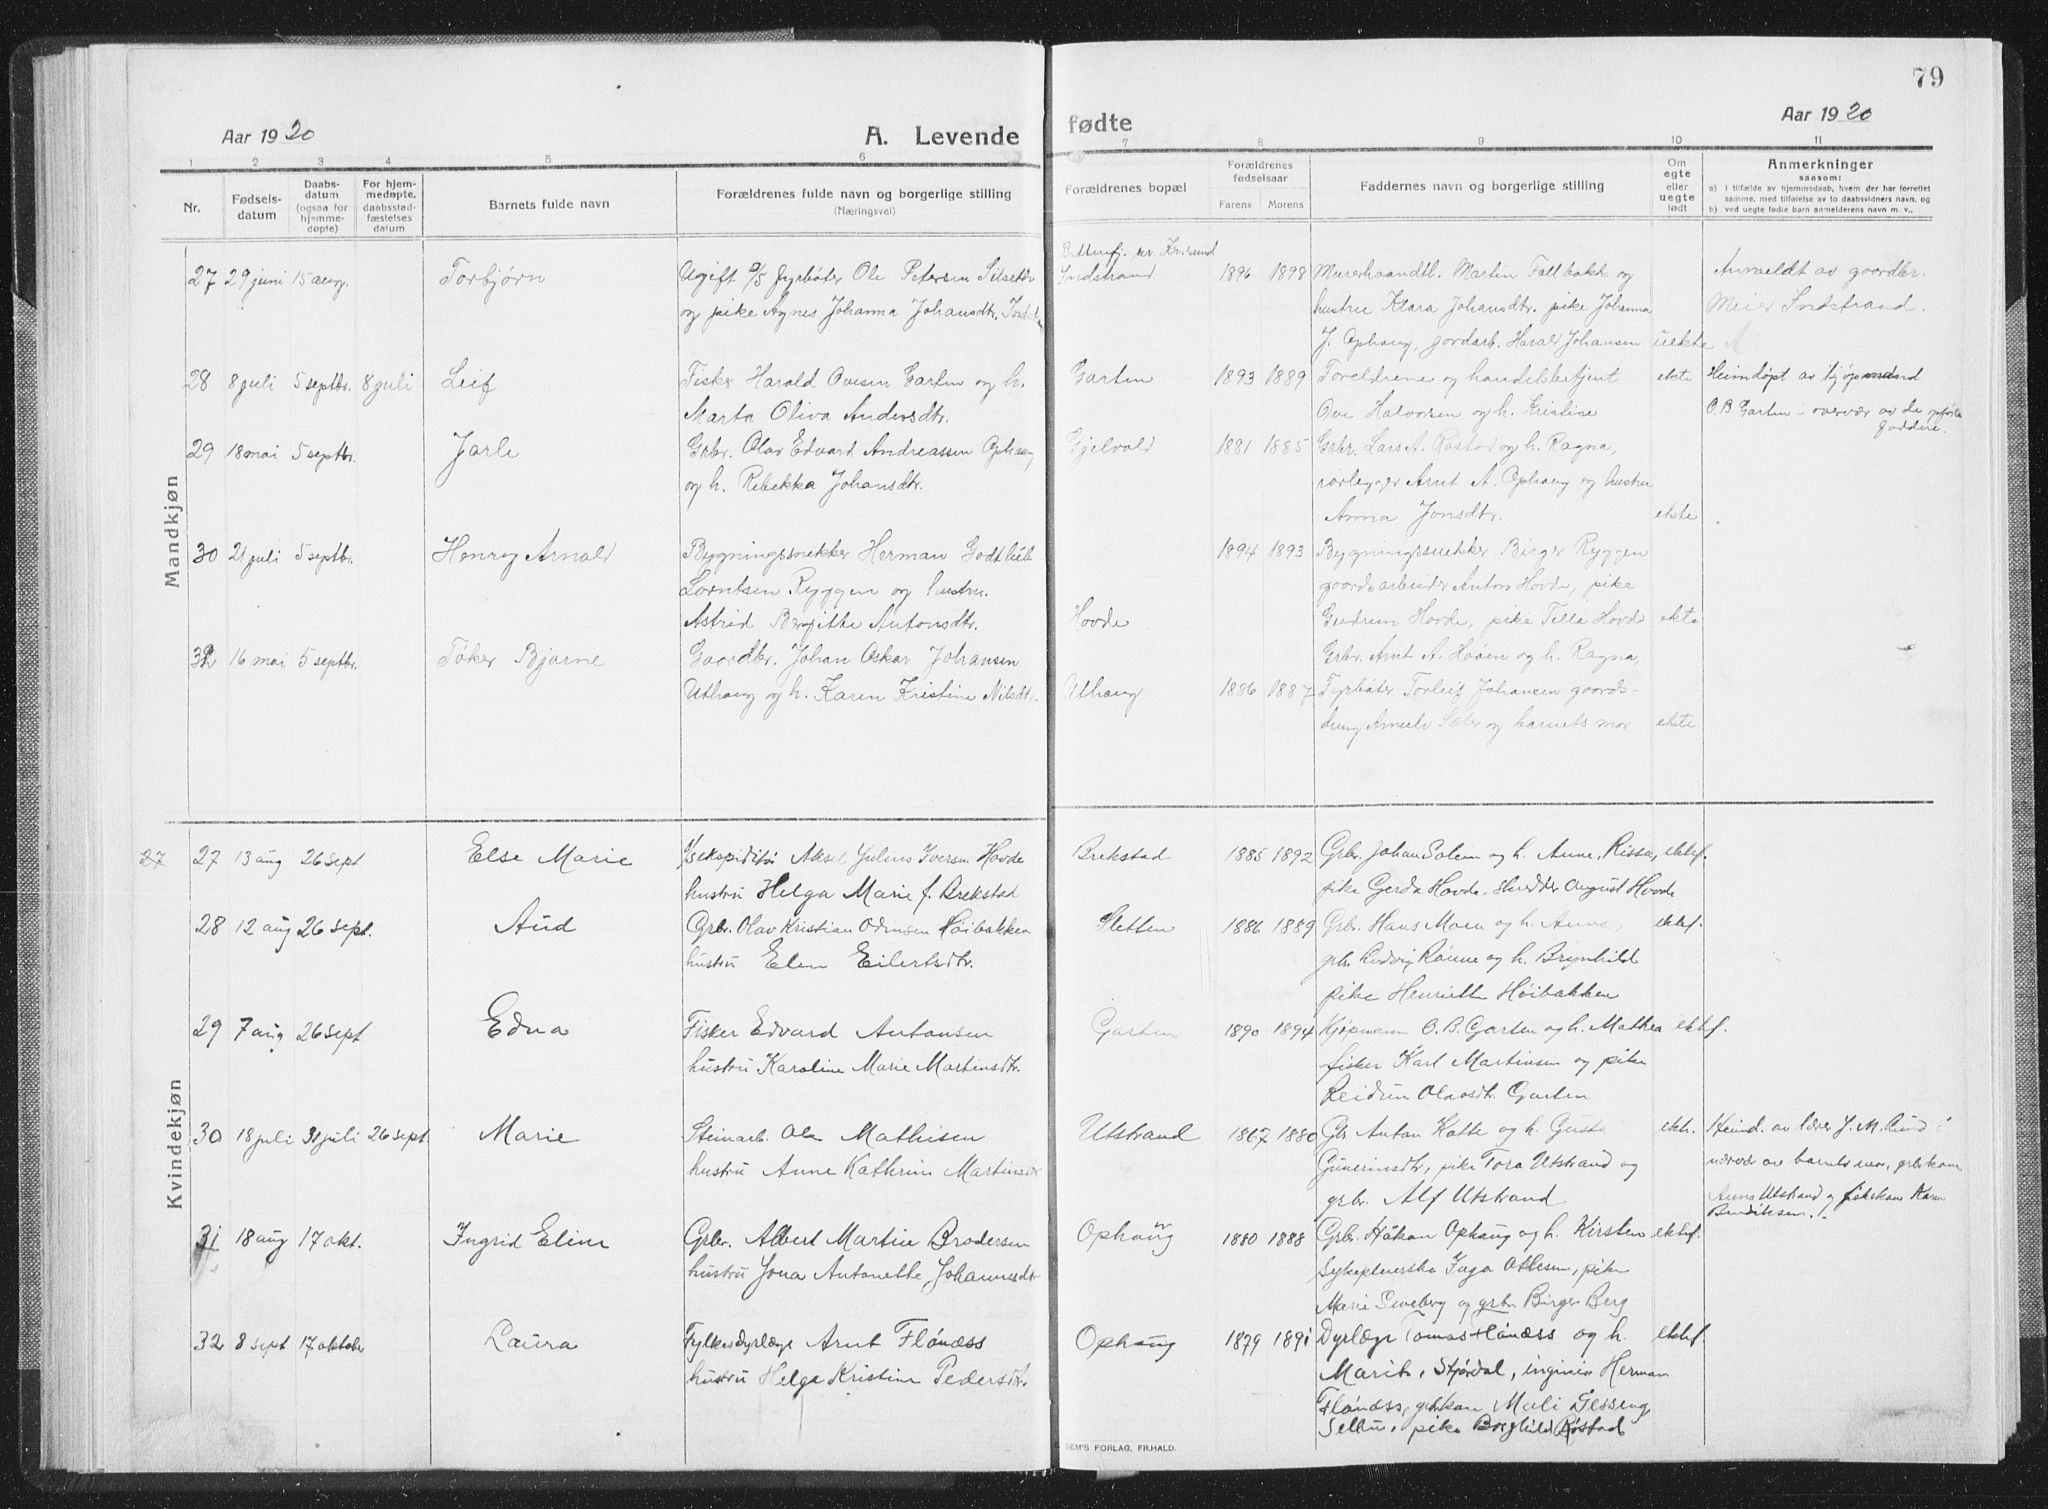 79
Aar 1920
A. Levende
fødte
Aar 1920
1 2 3 4 5 6 7 8 9 10 11
Nr.
Fødsels-
datum
Daabs-
datum
(ogsaa for
hjemme-
døpte)
For hjem-
medøpte,
daabsstad-
fæstelses
datum
Barnets fulde navn
Forældrenes fulde navn og borgerlige stilling
(Næringsvei)
Forældrenes bopæl
Forældrenes
fødselsaar
Farens Morens
Faddernes navn og borgerlige stilling
Om
egte
eller
uegte
født
Anmerkninger
saasom:
a) i tilfælde av hjemmedaab, hvem der har forrettet
samme, med tilføielse av to daabsvidners navn, og
b) ved uegte fødte barn anmelderens navn m. v..
Mandkjøn
27 29 juni 15 aug. Torbjørn Ugift Fyrbøter Ole Petersen
og pike Agnes Johanna Johansdtr.
Indstrand 1896 1898 Martin Fallbakk og
hustru Klara Johansdtr. pike Johanna
J. Ophaug, gordarb. Harald Johansen uekte
Anmeldt av gaardbr.
Meier Indstrand.
28 8 juli 5 septbr. 8 juli Leif Fisker Harald Ovesen Garten og h.
Marta Oliva Andersdtr.
Garten 1893 1889 Foreldrene og handelsbetjent ekte
Ove Halvorsen og h. Kristine
Heimdøpt av kjøpmand
O. B. Garten i overvær av de opførte
faddere.
29 18 mai 5 septbr. Jarle Grbr. Olav Edvard Andreassen Ophaug
og h. Rebekka Johansdtr.
Gjelvold 1881 1885 Grbr. Lars A. Røstad og h. Ragna,
rørlegger Arnt A. Ophaug og hustru
Anna Jonsdtr. ekte
30 21 juli 5 septbr. Henry Arnold Bygningssnekker Herman Godthilf
Lorntsen Ryggen og hustru
Astrid Bergitte Antonsdtr.
Hovde 1894 1893 Bygningssnekker Birger Ryggen
gaardsarbeider Anton Hovde, pike
Gudrun Hovde, pike Tella Hovde ekte
32 16 mai 5 septbr. Tøker Bjarne Gaardbr. Johan Oskar Johansen
Uthaug og h. Karen Kristine Nilsdtr.
Uthaug 1886 1887 Grbr. Arnt A. Høøen og h. Ragna,
Fyrbøter Torleif Johansen gaards-
dreng Sæter og barnets mor ekte
Kvindekjøn
27 27 13 aug 26 sept Else Marie Aksel Julius Iversen Hovde
hustru Helga Marie f. Brekstad
Brekstad 1885 1892 Grbr. Johan Solem og h. Anne, Rissa, ektef.
pike Gerda Hovde. skredder August Hovde
28 12 aug 26 sept. Aud Grbr. Olav Kristian Odinsen Høibakken
hustru Elen Eilertsdtr.
Sletten 1886 1889 Grbr. Hans Moen og h. Anna, ektef.
grbr. Ludvig Rønne og h. Brynhild
pike Henriette Høibakken
29 7 aug 26 sept Edna Fisker Edvard Antonsen
hustru Karoline Marie Martinsdtr.
Garten 1890 1894 Kjøpmann O. B. Garten og h. Mathea ektef.
fisker Karl Martinsen og pike
Reidun Olavsdtr. Garten
30 18 juli 31 juli 26 sept. Marie Steinarb. Ole Mathisen
hustru Anne Kathrine Martinsdtr
Utstrand 1867 1880 Gbr Anton Hatte og h. Gusta ekte.
pike Tora Utstrand og
grbr. Alf Utstrand
Heimd. av lærer J. M. Lund i
nærvær av barnets mor, grbrkone
Anna Utstrand og fiskekone Karen
Bendiksen.
31 18 aug 17 okt. Ingrid Eline Grbr. Albert Martin Brodersen
hustru Jona Antonette Johannesdtr
Ophaug 1880 1888 Grbr. Håkon Ophaug og h. Kirsten ektef.
Sykepleierske Inga Ottesen, pike
Marie Sneberg og grbr Birger Berg
32 8 sept 17 oktober Laura Fylkesdyrlæge Arnt Flønæss
hustru Helga Kristine Pedersdtr.
Ophaug 1879 1891 Dyrlæge Tomas Flønæss og h. ektef.
Marit, Stjørdal, inginiør Herman
Flønæss, gbrkone Mali Dessing,
Selbu, pike Borghild Røstad
SEM'S FORLAG, FR.HALD.